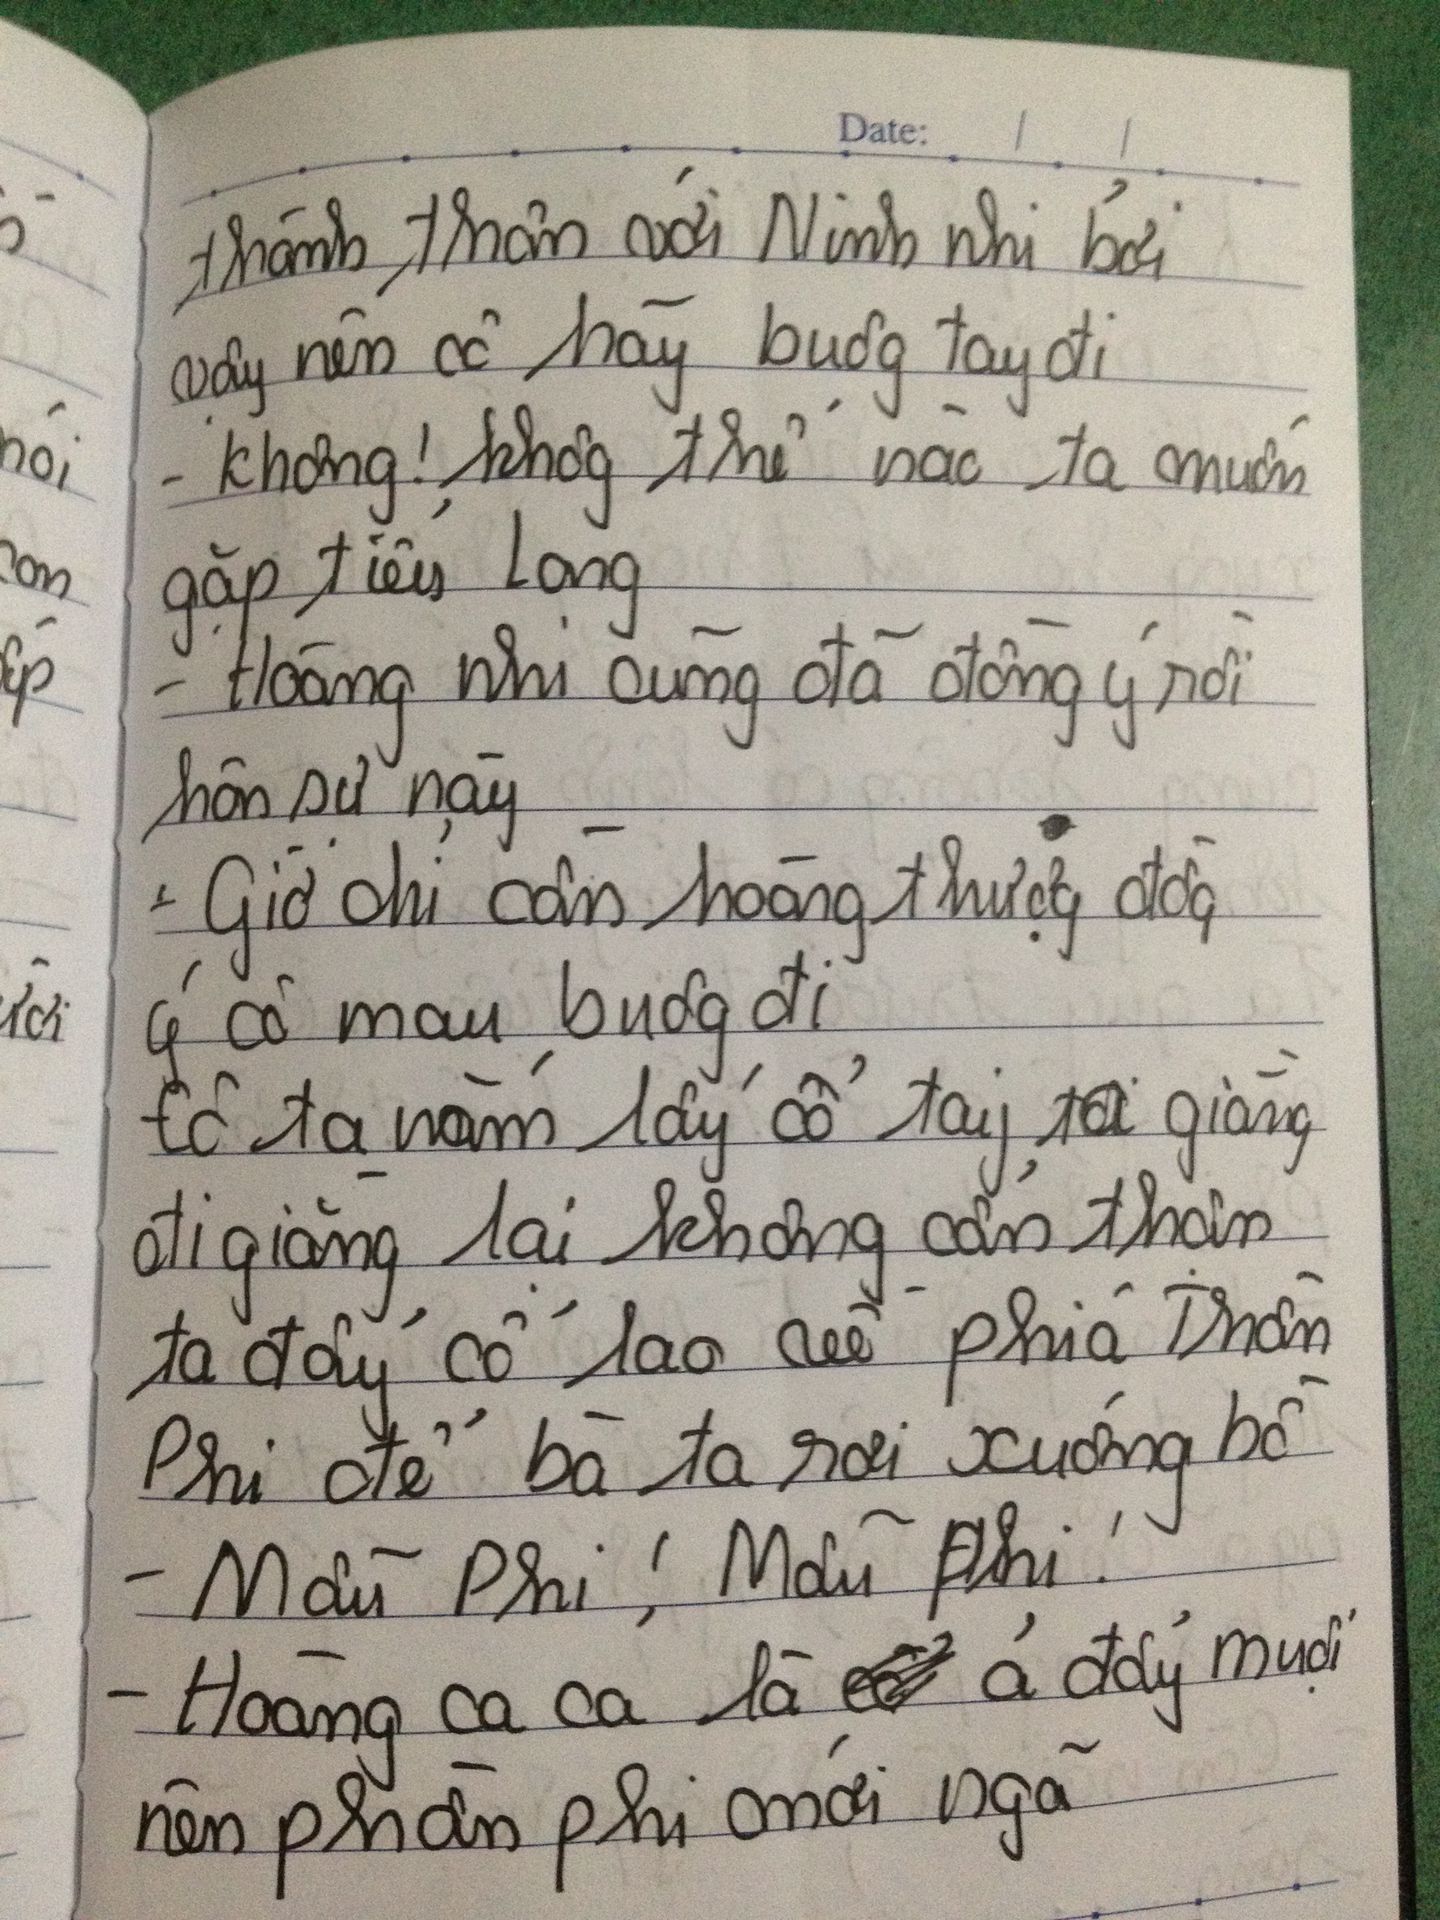 Date: / /
thành thân với Ninh nhi bởi
vậy nên cô hãy buôg tay đi
nói
- Không! khôg thể nào ta muốn
gặp tiểu Long
con
- Hoàng nhi cũng đã đồng ý rồi
hôn sự này
- Giờ chỉ cần hoàng thượg đồg
ý cô mau buôg đi
Cô ta nắm lấy cổ tay tôi giằng
đi giằng lại không cẩn thận
ta đẩy cô lao về phía Thần
Phi để bà ta rơi xuống hồ
- Mẫu Phi! Mẫu Phi!
- Hoàng ca ca là ả đẩy muội
nên phần phi mới ngã